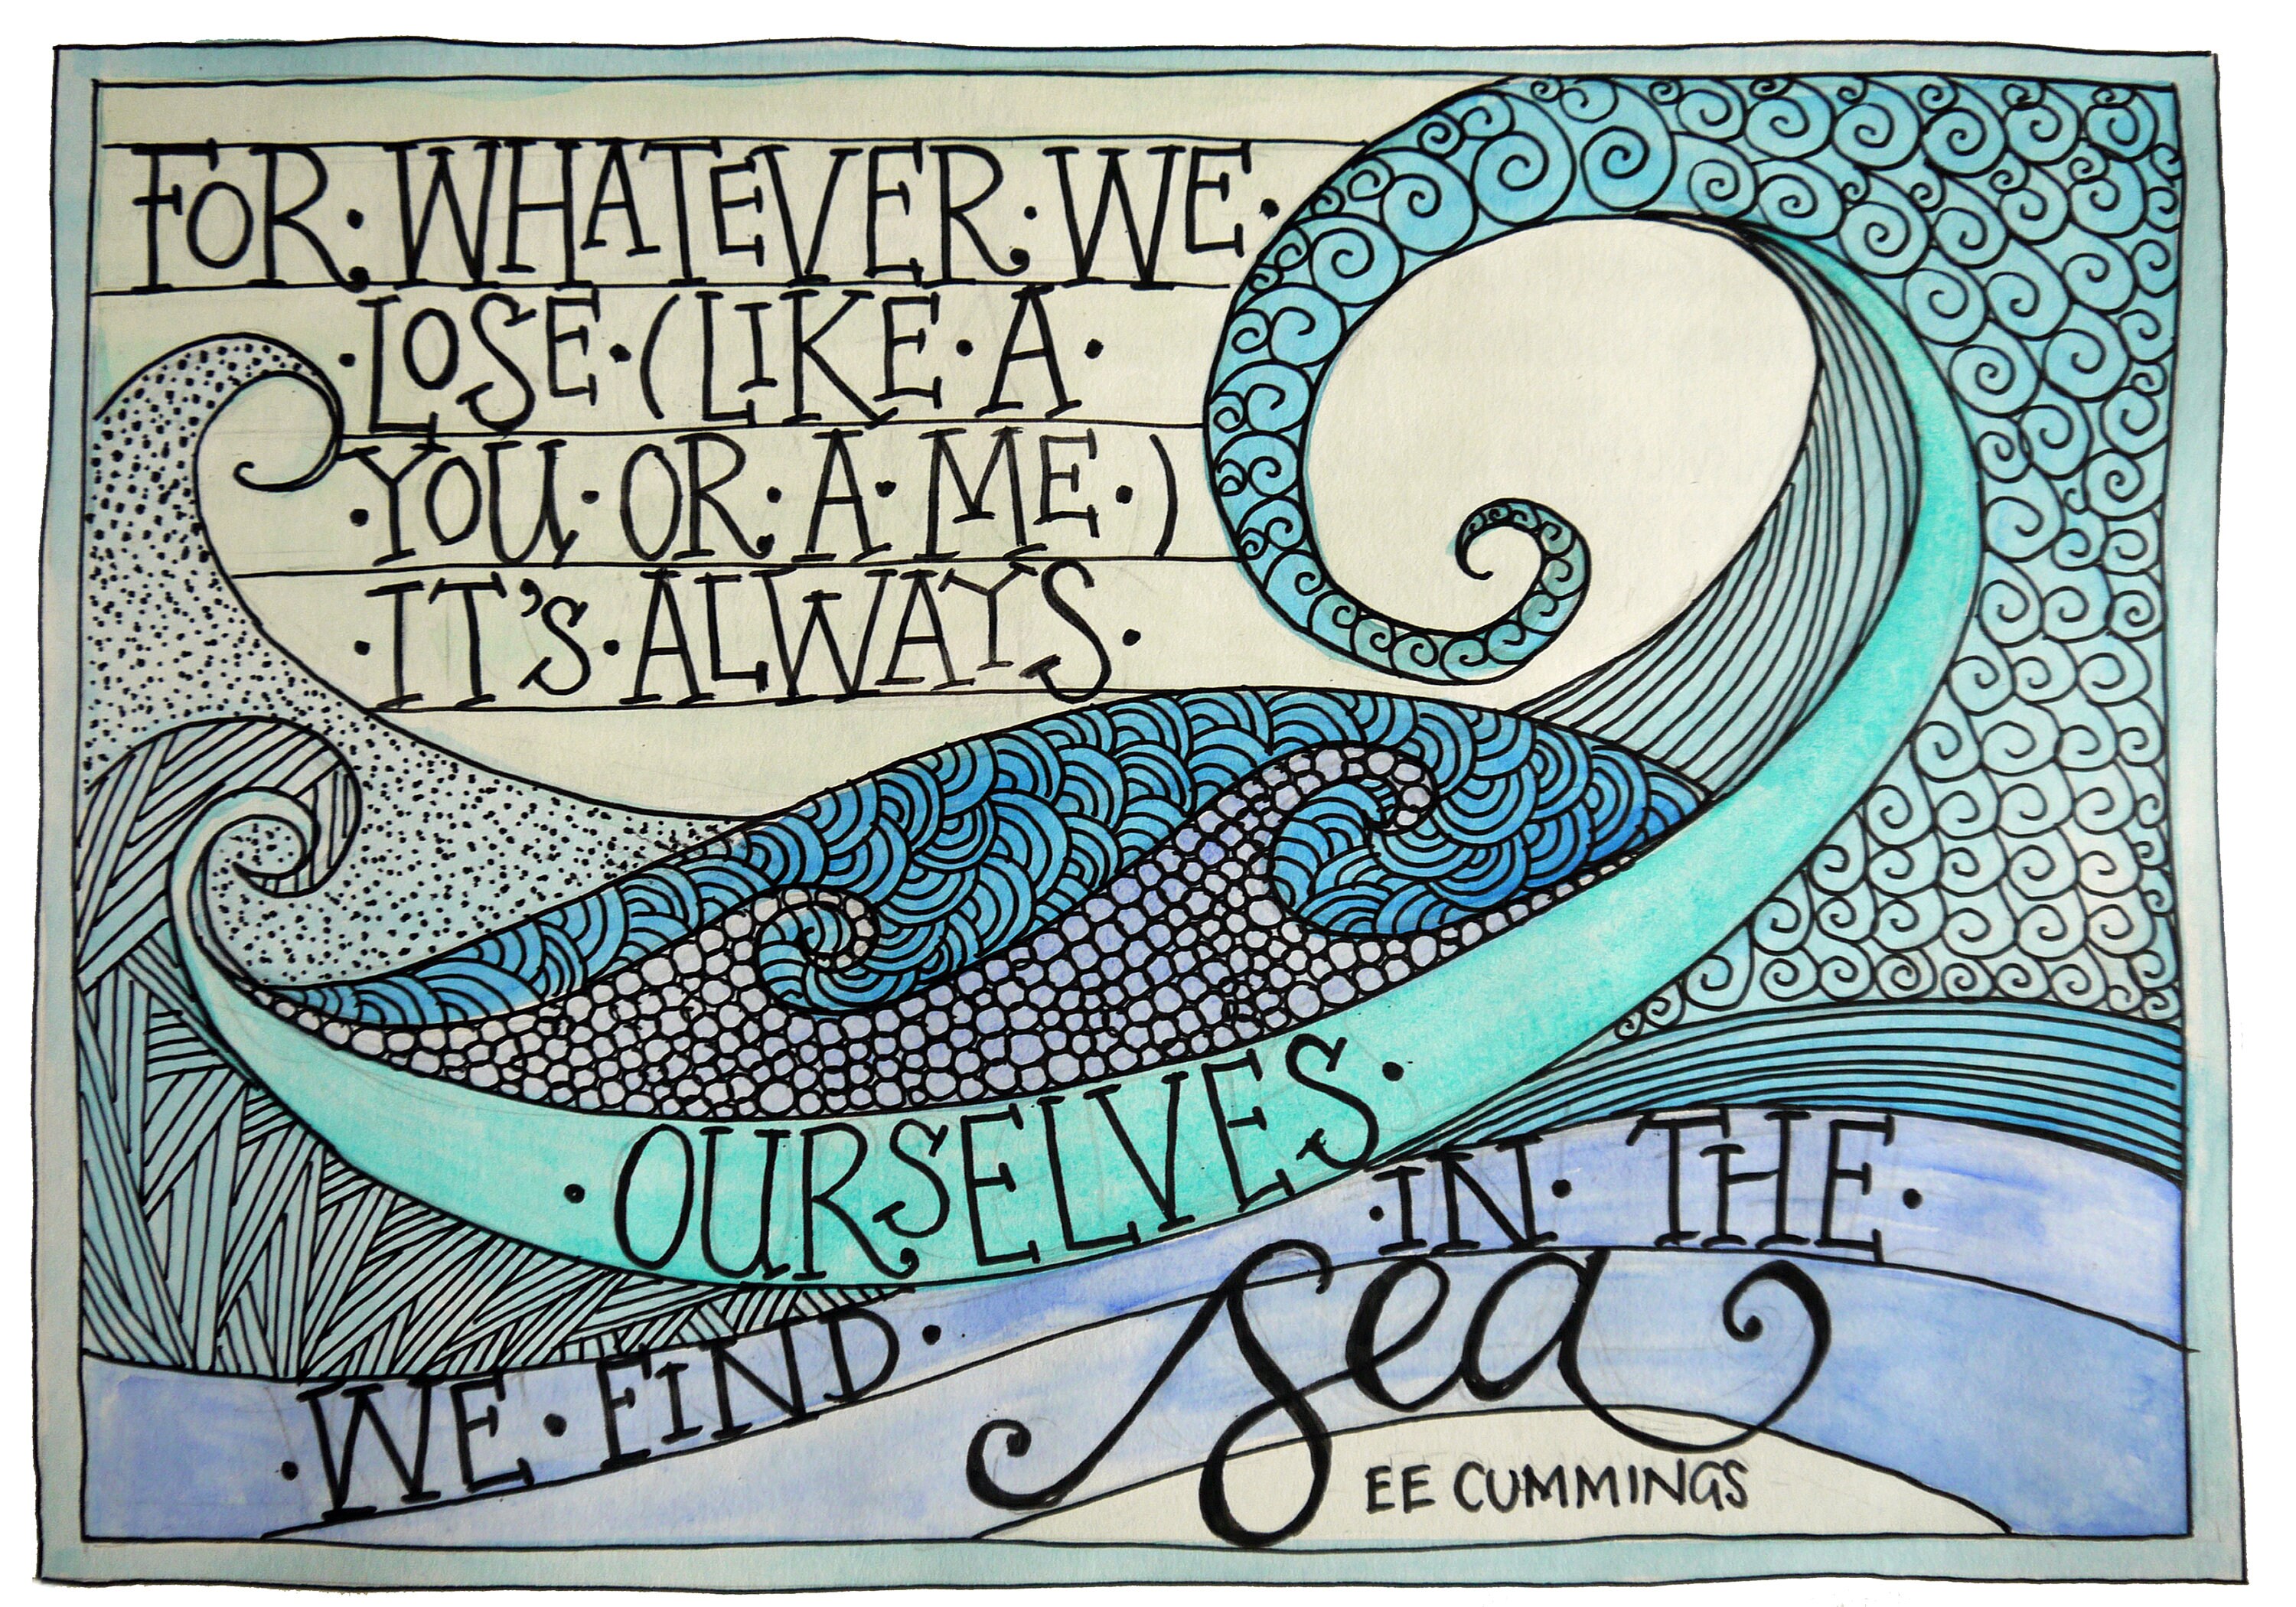 FOR·WHATEVER·WE·
·LOSE·(LIKE·A·
·YOU·OR·A·ME·)
·IT'S·ALWAYS·
·OURSELVES·
·WE·FIND·
·IN·THE·
sea
EE CUMMINGS